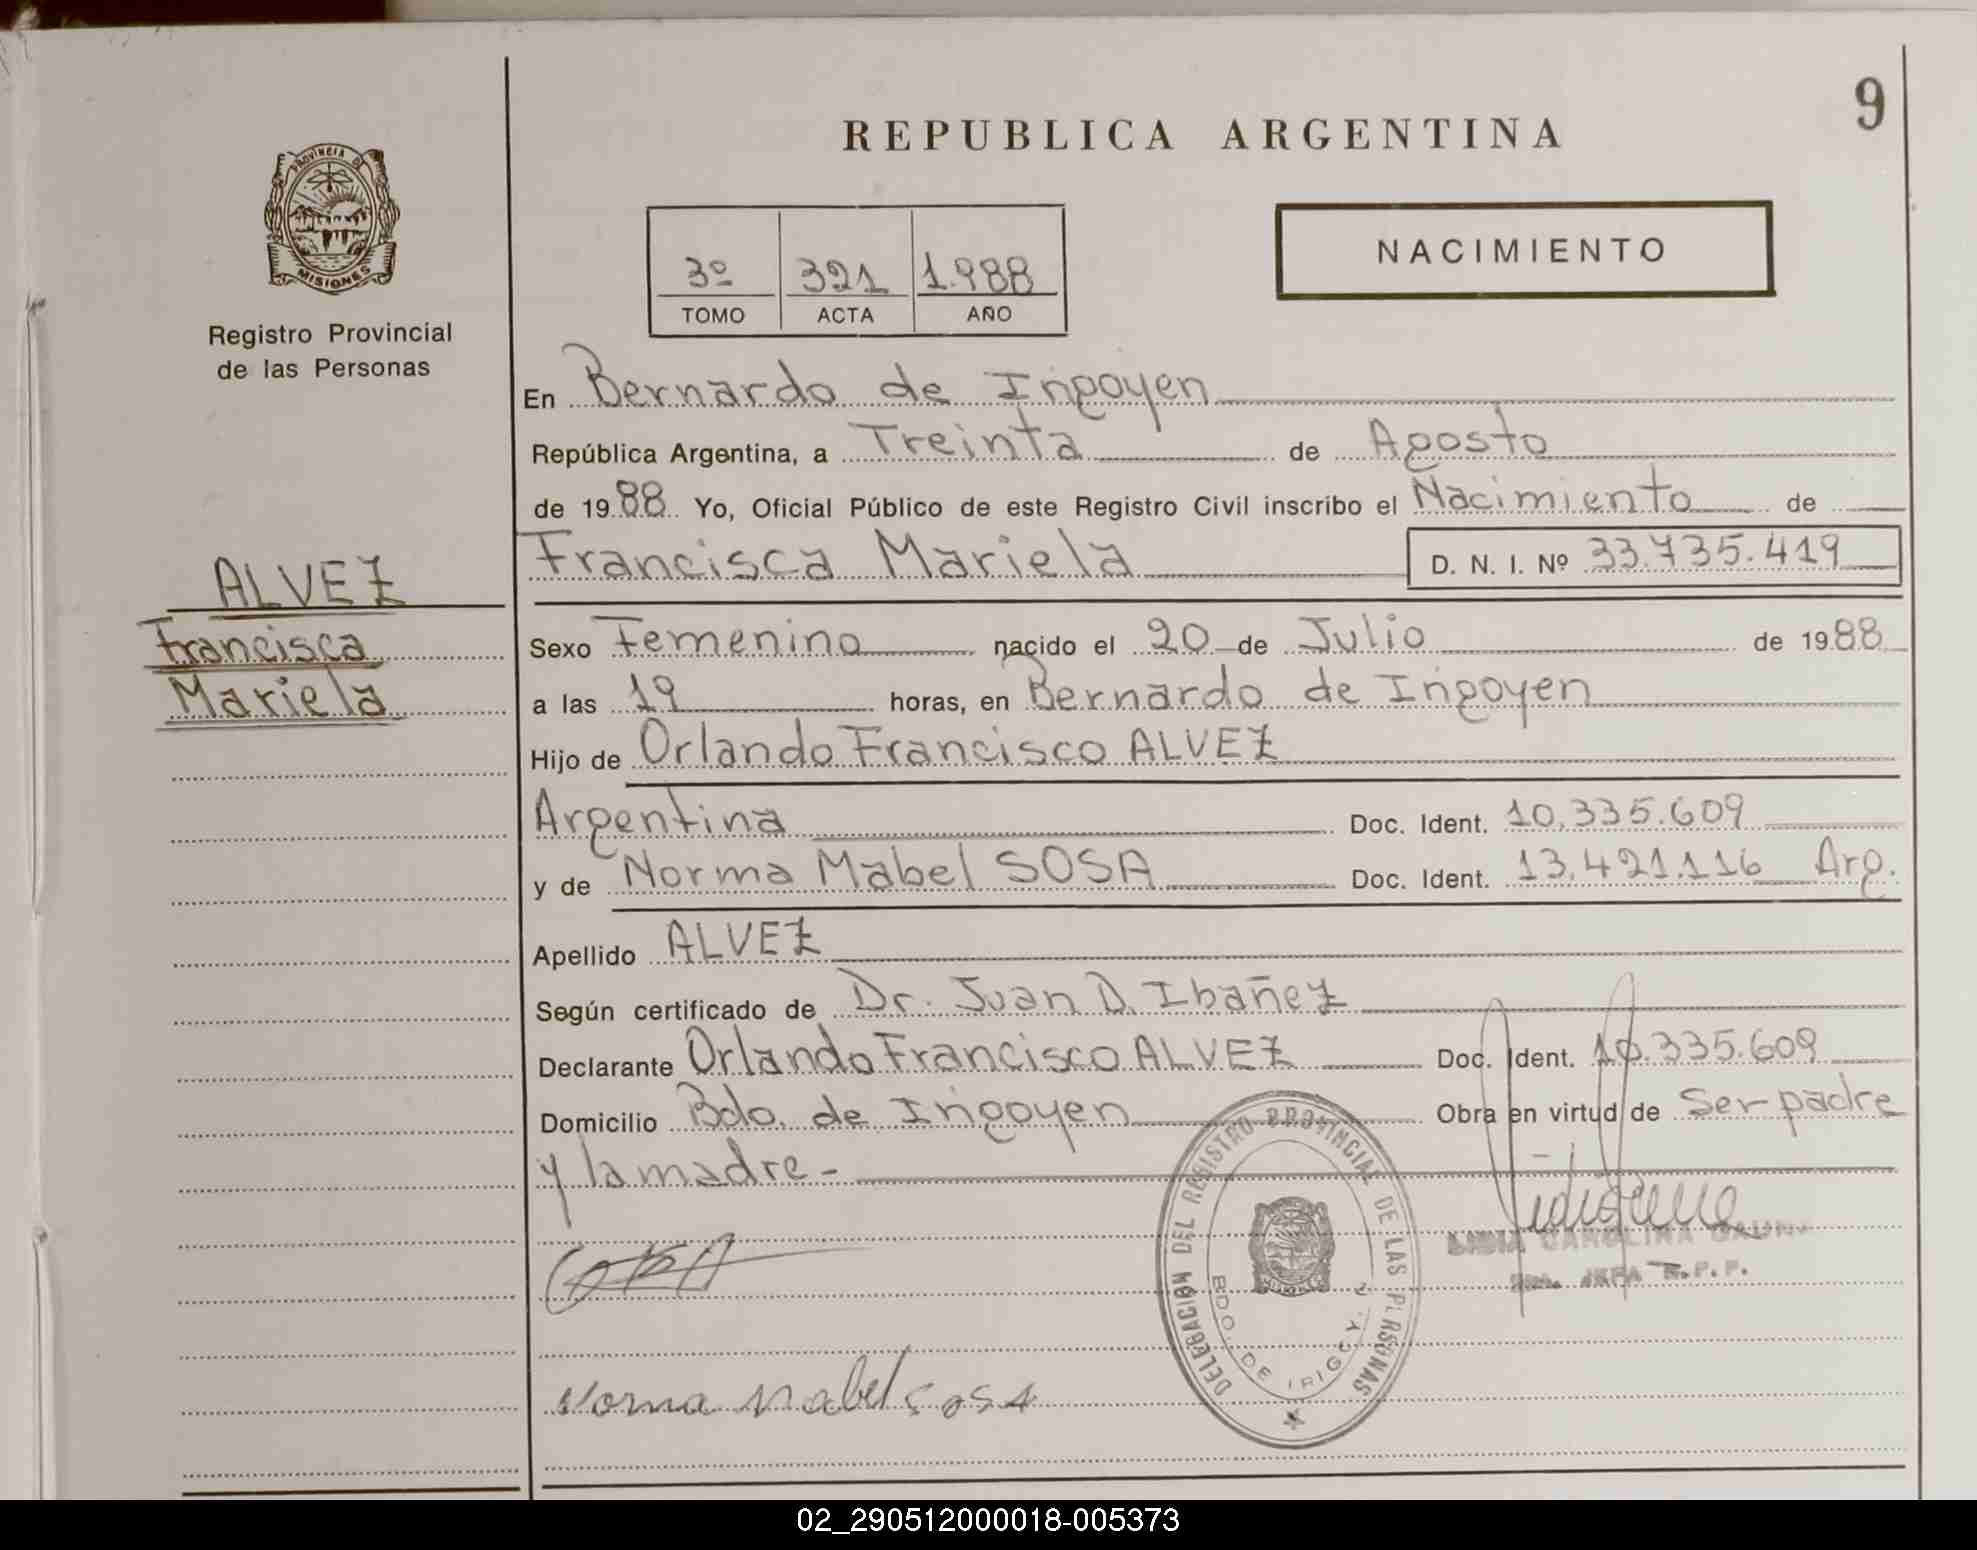 9
REPUBLICA ARGENTINA
PROVINCIA D
MISIONES
Registro Provincial
de las Personas
3º 321 1.988
TOMO ACTA AÑO
NACIMIENTO
En Bernardo de Irigoyen
República Argentina, a Treinta de Agosto
de 1988 Yo, Oficial Público de este Registro Civil inscribo el Nacimiento de
Francisca Mariela D. N. I. Nº 33.735.419
ALVEZ
Francisca
Mariela
Sexo Femenino nacido el 20 de Julio de 1988
a las 19 horas, en Bernardo de Irigoyen
Hijo de Orlando Francisco ALVEZ
Argentina Doc. Ident. 10.335.609
y de Norma Mabel SOSA Doc. Ident. 13.421.116 Arg.
Apellido ALVEZ
Según certificado de Dr. Juan D. Ibañez
Declarante Orlando Francisco ALVEZ Doc. Ident. 10.335.609
Domicilio Bdo. de Irigoyen Obra en virtud de Ser padre
y la madre-
DELEGACION DEL REGISTRO PROVINCIAL DE LAS PERSONAS
BDO. DE IRIGOY
CAROLINA
JEFA R.P.P.
Norma Mabel Sosa
02_290512000018-005373